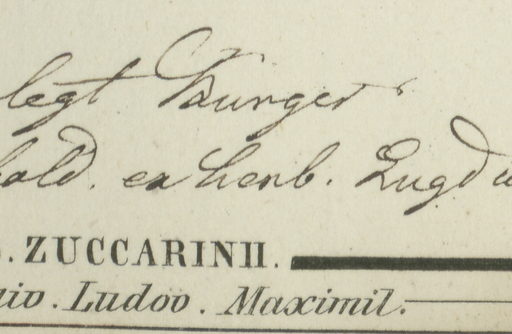 legt Burger
bold. ex herb. Lugd
. ZUCCARINII.
iv. Ludov. Maximil.